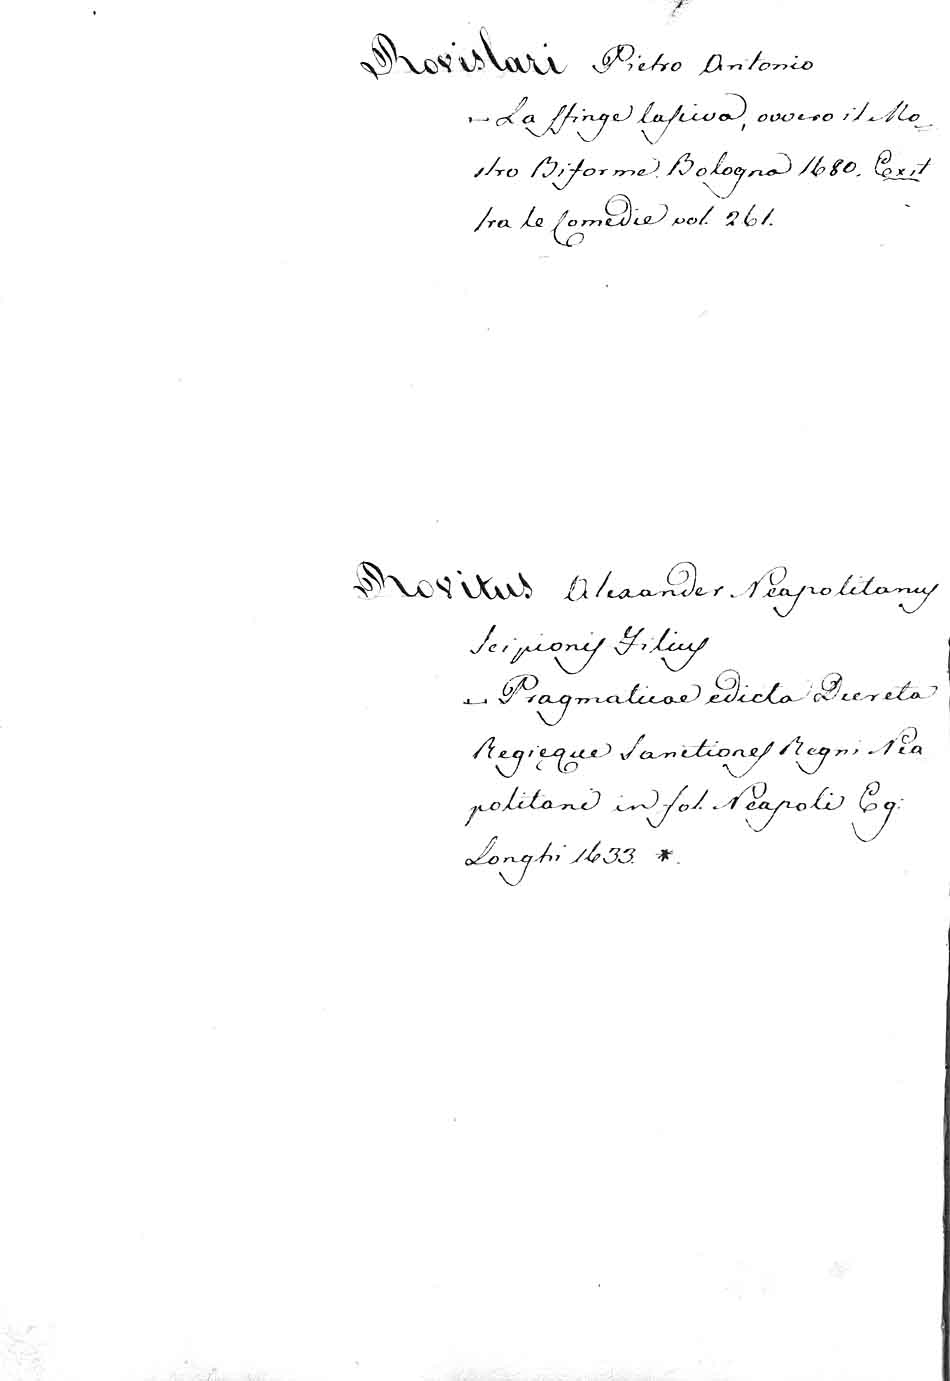 Rovislari Pietro Antonio
— La sfinge lasciva, ovvero il Mo-
stro Biforme. Bologna 1680. Exit
tra le Comedie vol. 261.
Rovitus Alexander Neapolitanus
Scipionis Filius
— Pragmaticae edicta Decreta
Regięque Sanctiones Regni Nea
politani in fol. Neapoli Eg:
Longhi 1633. *.